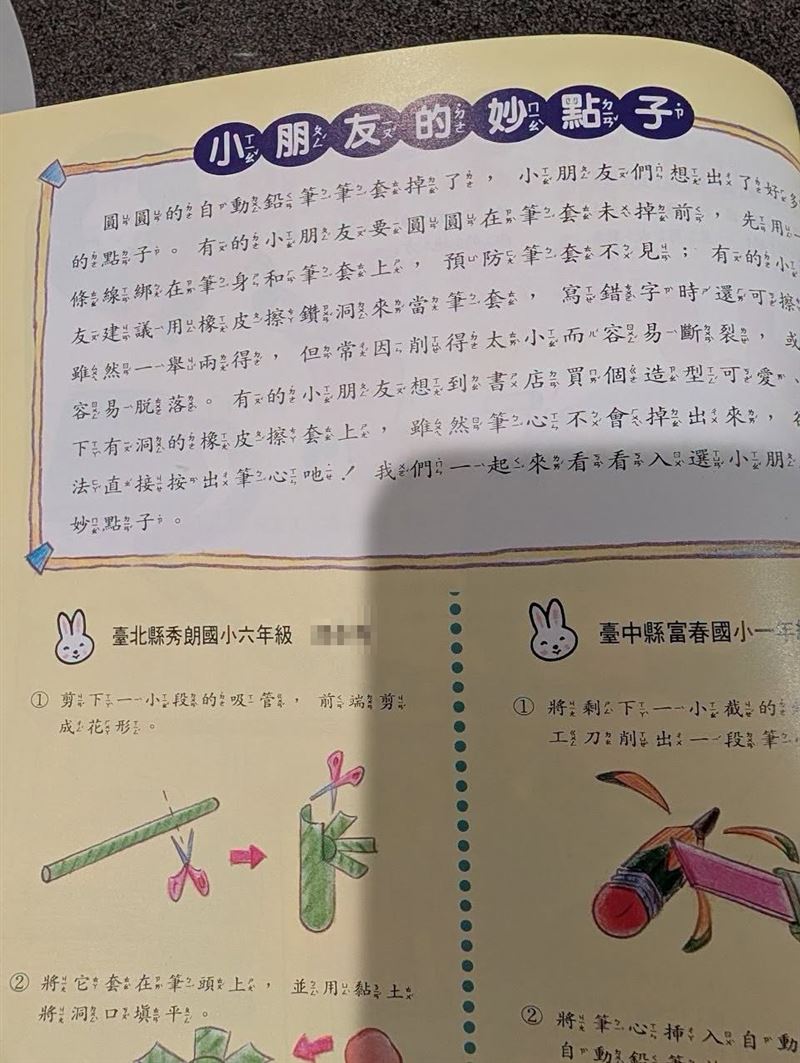 小朋友的妙點子
圓圓的自動鉛筆筆套掉了，小朋友們想出了好多
的點子。有的小朋友要圓圓在筆套未掉前，先用一
條線綁在筆身和筆套上，預防筆套不見；有的小
友建議用橡皮擦鑽洞來當筆套，寫錯字時還可擦
雖然一舉兩得，但常因削得太小而容易斷裂，或
容易脫落。有的小朋友想到書店買個造型可愛、
下有洞的橡皮擦套上，雖然筆心不會掉出來，
法直接按出筆心吔！我們一起來看看入選小朋
妙點子。
臺北縣秀朗國小六年級
① 剪下一小段的吸管，前端剪
成花形。
② 將它套在筆頭上，並用黏土
將洞口填平。
臺中縣富春國小一年
① 將剩下一小截的
工刀削出一段筆
② 將筆心插入自動
自動鉛筆